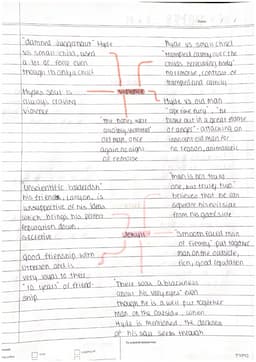 "damned Juggernaut" Hyde
vs small child, used
a lot of force even
though its only a child
Hydes soul is
always craving
violence
Hyde vs small child
"trampled calmly over the
child's body"
no remorse, contrast of
trampled and calmly
violence
Hyde vs old man
"ape like fury", he
"broke out in a great flame
of anger" - attacking an
innocent old man for
no reason, animalistic
"the bones were
audibly shattered"
old man, once
again no sight
of remorse
"Unscientific balderdash"
his friend, Lanyon, is
unsupportive of his ideas
which brings his
reputation down
secretive
Good friendship with
Utterson and is
very loyal to their
"10 years" of friend-
ship.
Jekyll
"man is not truly
one, but truly two"
believes that he can
separate his evil side
from his good side
"smooth faced man
of fifty" put together
man on the outside,
rich, good reputation
"There was a blackness
about his eyes" even
though he is a well put together
man on the outside, when
Hyde is mentioned, the darkness
of his soul seeps through